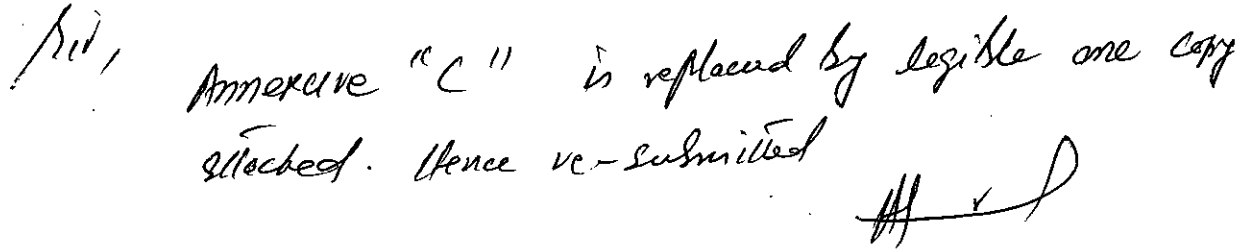 Sir,
Annexure "C" is replaced by legible one copy
attached. Hence re-submitted